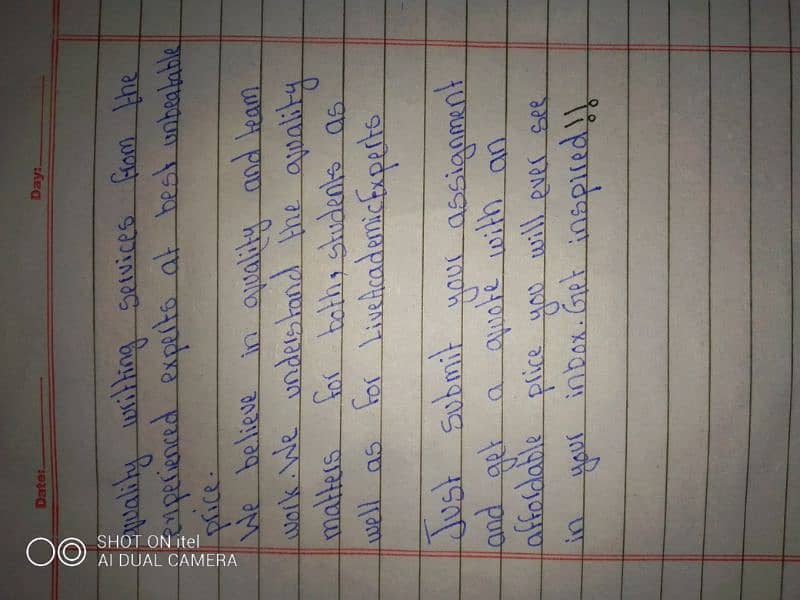 Date:
Day:
quality writting services from the
experienced experts at best unbeatable
price.
We believe in quality and team
work. We understand the quality
matters for both, students as
well as for LiveAcademicExperts
Just submit your assignment
and get a quote with an
affordable price you will ever see
in your inbox. Get inspired!!
SHOT ON itel
AI DUAL CAMERA